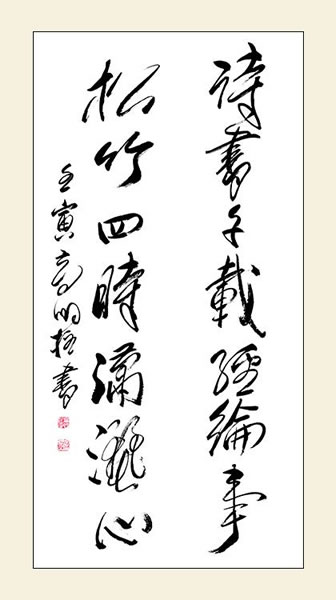 詩書千載經綸事
松竹四時瀟灑心
壬寅高明柱書